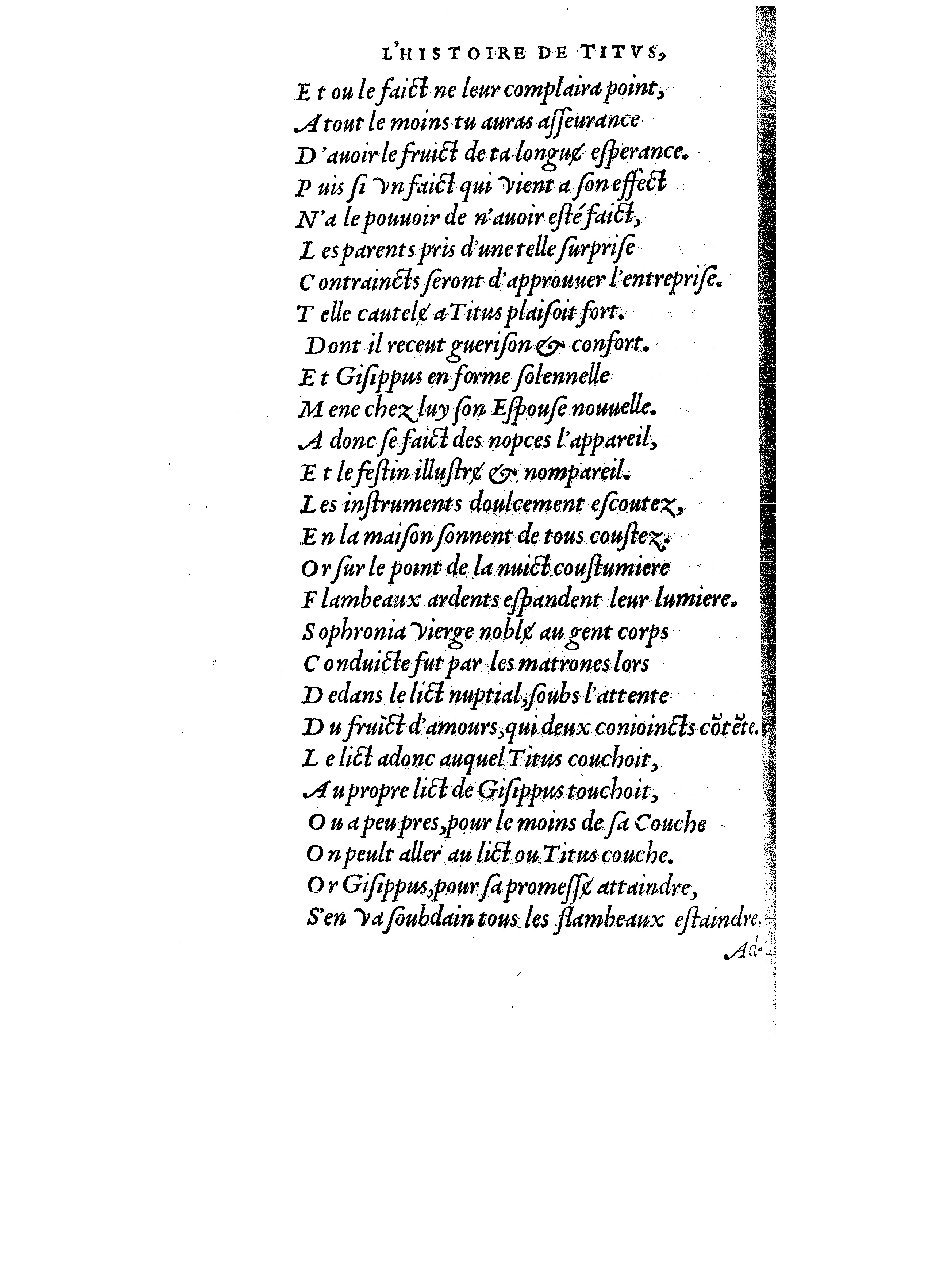 L'HISTOIRE DE TITVS,
Et ou le faict ne leur complaira point,
A tout le moins tu auras aſſeurance
D'auoir le fruict de ta longuɇ eſperance.
Puis ſi vn faict qui vient a ſon effect
N'a le pouuoir de n'auoir eſté faict,
Les parents pris d'une telle ſurpriſe
Contraincts ſeront d'approuuer l'entrepriſe.
Telle cautelɇ a Titus plaiſoit fort.
Dont il receut gueriſon & confort.
Et Giſippus en forme ſolennelle
Mene chez luy ſon Eſpouſe nouuelle.
Adonc ſe faict des nopces l'appareil,
Et le feſtin illuſtrɇ & nompareil.
Les inſtruments doulcement eſcoutez,
En la maiſon ſonnent de tous couſtez.
Or ſur le point de la nuict couſtumiere
Flambeaux ardents eſpandent leur lumiere.
Sophronia vierge noblɇ au gent corps
Conduicte fut par les matrones lors
Dedans le lict nuptial, ſoubs l'attente
Du fruict d'amours, qui deux conioincts cõtẽte.
Le lict adonc auquel Titus couchoit,
Au propre lict de Giſippus touchoit,
Ou a peu pres, pour le moins de ſa Couche
On peult aller au lict ou Titus couche.
Or Giſippus, pour ſa promeſſɇ attaindre,
S'en va ſoubdain tous les flambeaux eſtaindre.
Ad-